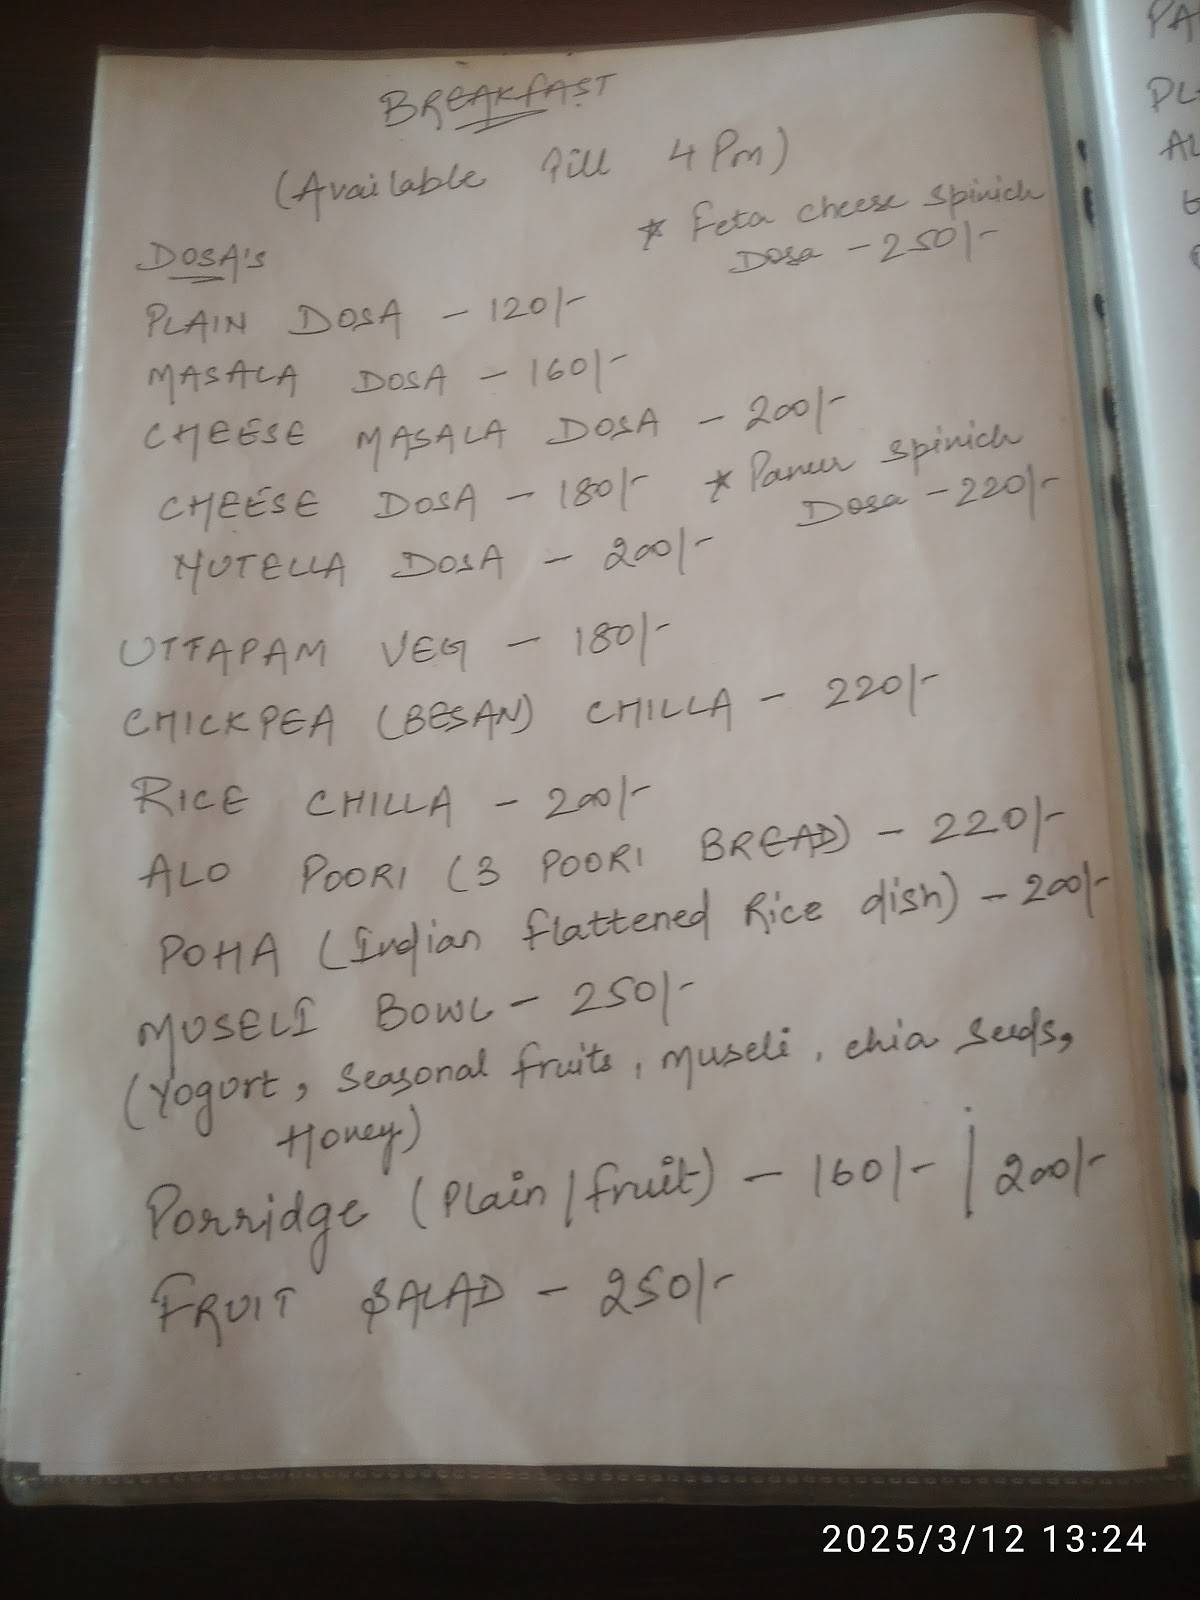 BREAKFAST
(Available Till 4 Pm)
* Feta cheese spinich
Dosa - 250/-
DOSA's
PLAIN DOSA - 120/-
MASALA DOSA - 160/-
CHEESE MASALA DOSA - 200/-
CHEESE DOSA - 180/-
* Paneer spinich
Dosa - 220/-
NUTELLA DOSA - 200/-
UTTAPAM VEG - 180/-
CHICKPEA (BESAN) CHILLA - 220/-
RICE CHILLA - 200/-
ALO POORI (3 POORI BREAD) - 220/-
POHA (Indian flattened Rice dish) - 200/-
MUSELI BOWL - 250/-
(Yogurt, Seasonal fruits, Museli, chia seeds,
Honey)
Porridge (Plain/fruit) - 160/- | 200/-
FRUIT SALAD - 250/-
PA
PL
AL
2025/3/12 13:24